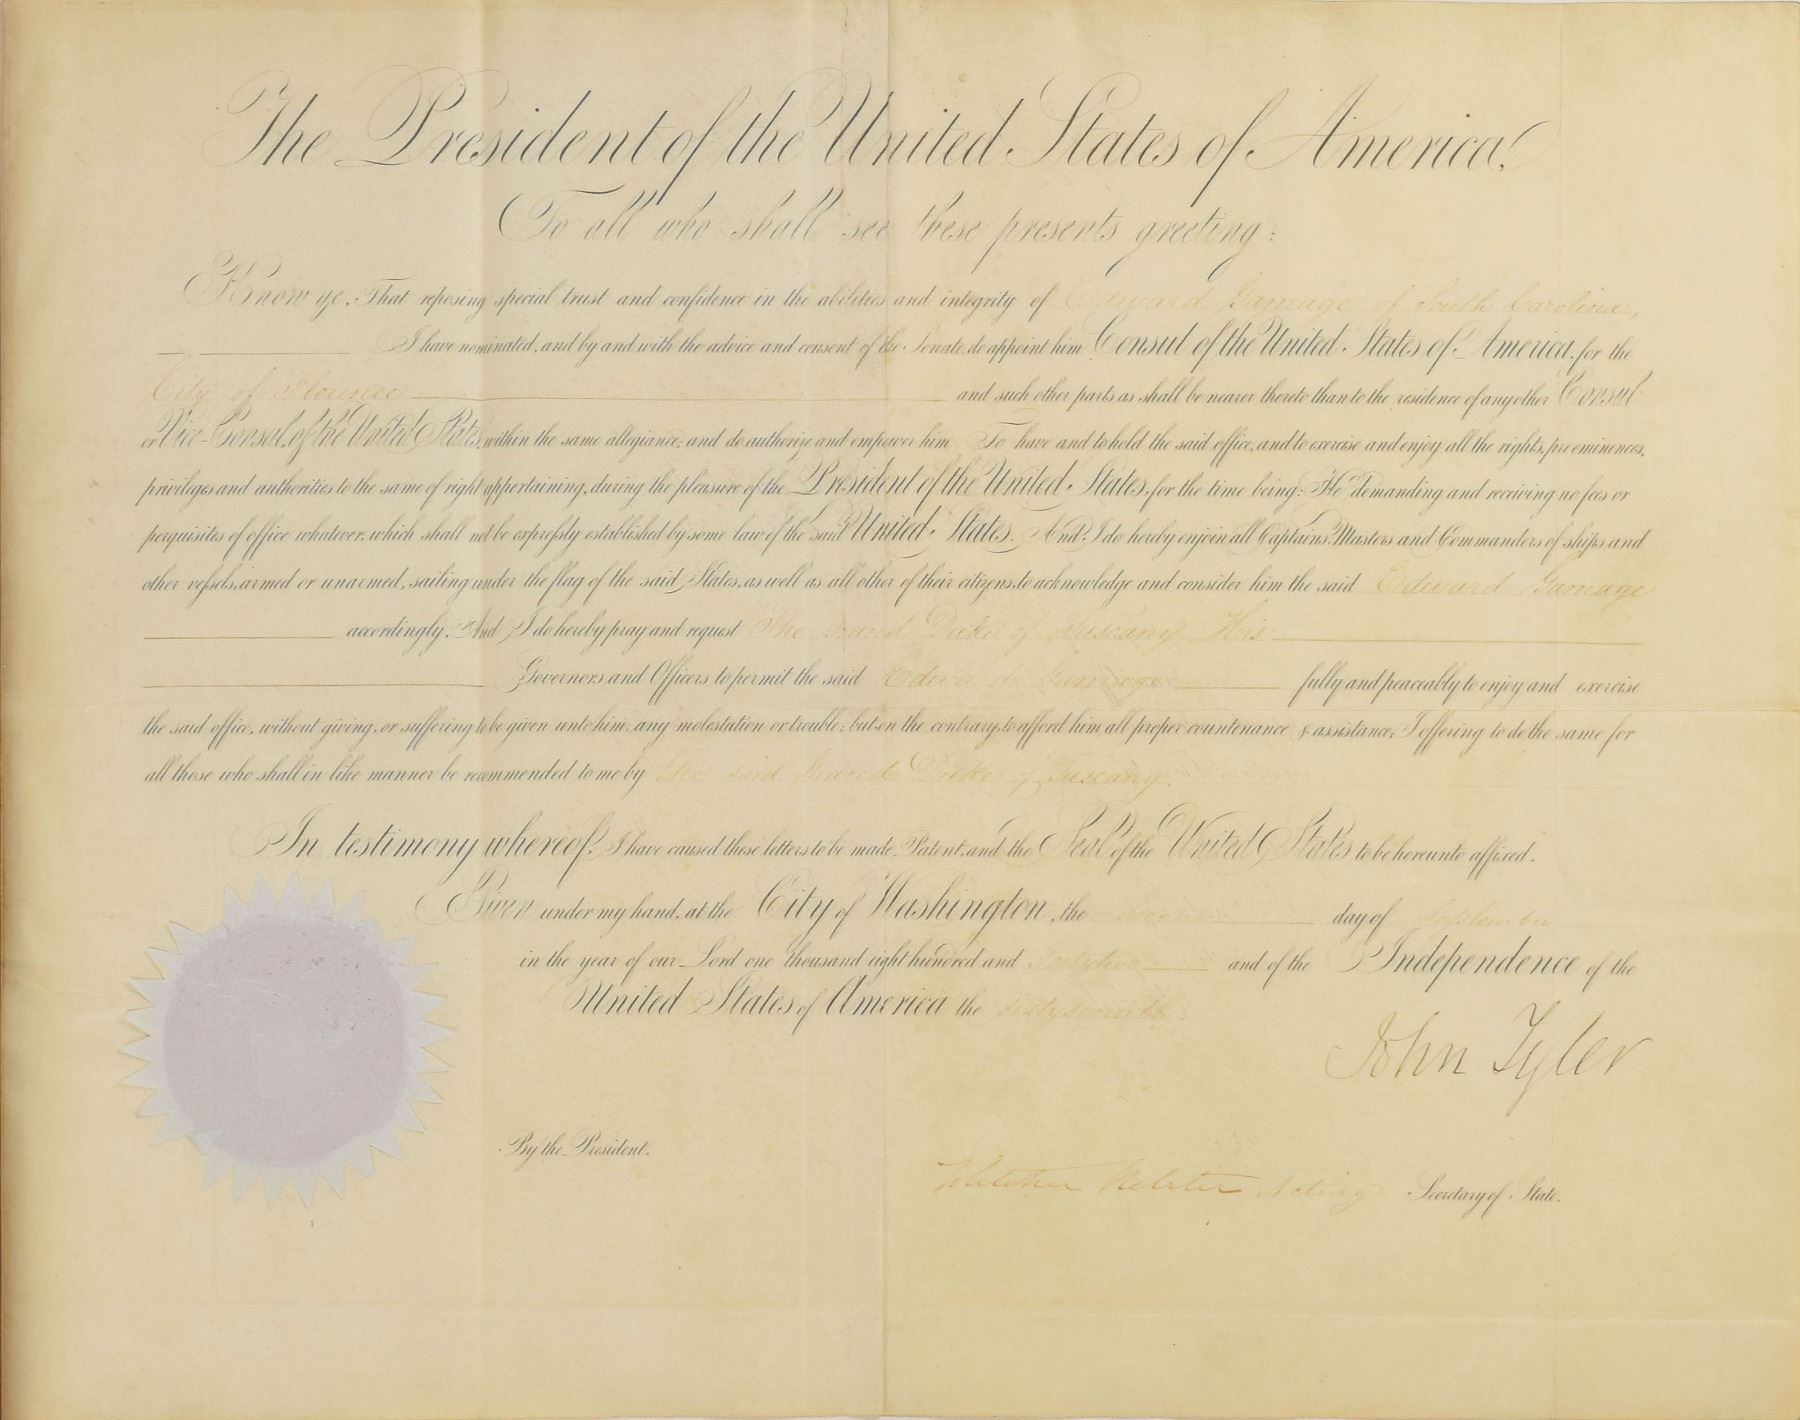 The President of the United States of America,
To all who shall see these presents greeting:
Know ye, That reposing special trust and confidence in the abilities and integrity of Edward Gamage of South Carolina,
I have nominated, and by and with the advice and consent of the Senate, do appoint him Consul of the United States of America, for the
City of Florence and such other parts as shall be nearer thereto than to the residence of any other Consul
or Vice-Consul, of the United States, within the same allegiance; and do authorize and empower him To have and to hold the said office, and to exercise and enjoy all the rights, preeminences,
privileges and authorities to the same of right appertaining, during the pleasure of the President of the United States, for the time being: He demanding and receiving no fees or
perquisites of office whatever, which shall not be expressly established by some law of the said United States. And I do hereby enjoin all Captains Masters and Commanders of ships and
other vessels, armed or unarmed, sailing under the flag of the said States, as well as all other of their citizens, to acknowledge and consider him the said Edward Gamage
accordingly. And I do hereby pray and request The Grand Duke of Tuscany, His
Governors and Officers to permit the said Edward Gamage fully and peaceably to enjoy and exercise
the said office, without giving, or suffering to be given unto him, any molestation or trouble; but on the contrary, to afford him all proper countenance & assistance; I offering to do the same for
all those who shall in like manner be recommended to me by the said Grand Duke of Tuscany.
In testimony whereof, I have caused these letters to be made Patent, and the Seal of the United States to be hereunto affixed.
Given under my hand, at the City of Washington, the day of September
in the year of our Lord one thousand eight hundred and and of the Independence of the
United States of America the sixty seventh.
John Tyler
By the President.
Fletcher Webster Acting Secretary of State.